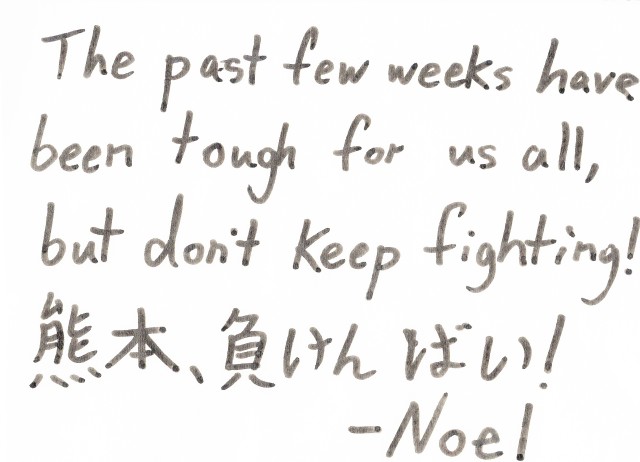 The past few weeks have
been tough for us all,
but don't keep fighting!
熊本、負けんばい!
-Noel